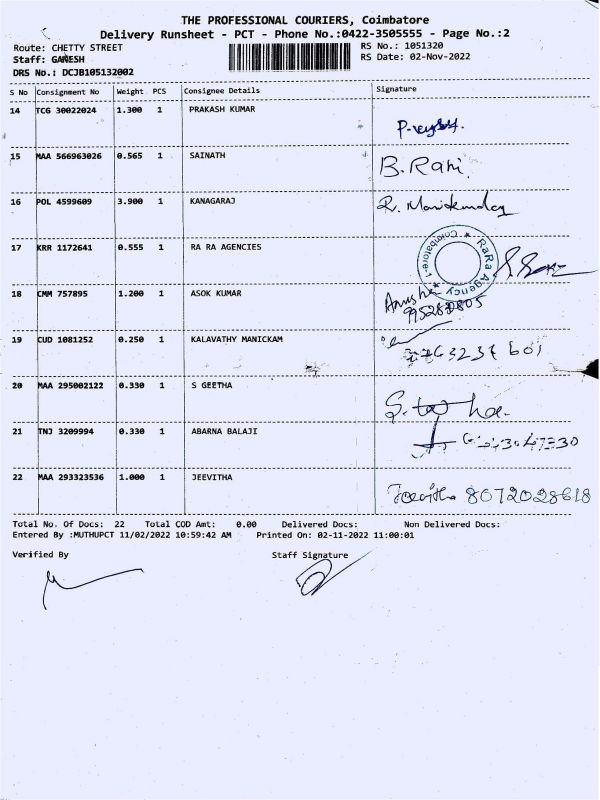 THE PROFESSIONAL COURIERS, Coimbatore
Delivery Runsheet - PCT - Phone No.:0422-3505555 - Page No.:2
Route: CHETTY STREET
RS No.: 1051320
Staff: GANESH
RS Date: 02-Nov-2022
DRS No.: DCJB105132002
S No Consignment No Weight PCS Consignee Details Signature
14 TCG 30022024 1.300 1 PRAKASH KUMAR
15 MAA 566963026 0.565 1 SAINATH B. Rani.
16 POL 4599609 3.900 1 KANAGARAJ
17 KRR 1172641 0.555 1 RA RA AGENCIES
RaRa Agency ★ Coimbatore-1 ★
18 CMM 757895 1.200 1 ASOK KUMAR Anusha
19 CUD 1081252 0.250 1 KALAVATHY MANICKAM
20 MAA 295002122 0.330 1 S GEETHA
21 TNJ 3209994 0.330 1 ABARNA BALAJI
22 MAA 293323536 1.000 1 JEEVITHA Jeevitha 8072028618
Total No. Of Docs: 22 Total COD Amt: 0.00 Delivered Docs: Non Delivered Docs:
Entered By :MUTHUPCT 11/02/2022 10:59:42 AM Printed On: 02-11-2022 11:00:01
Verified By Staff Signature